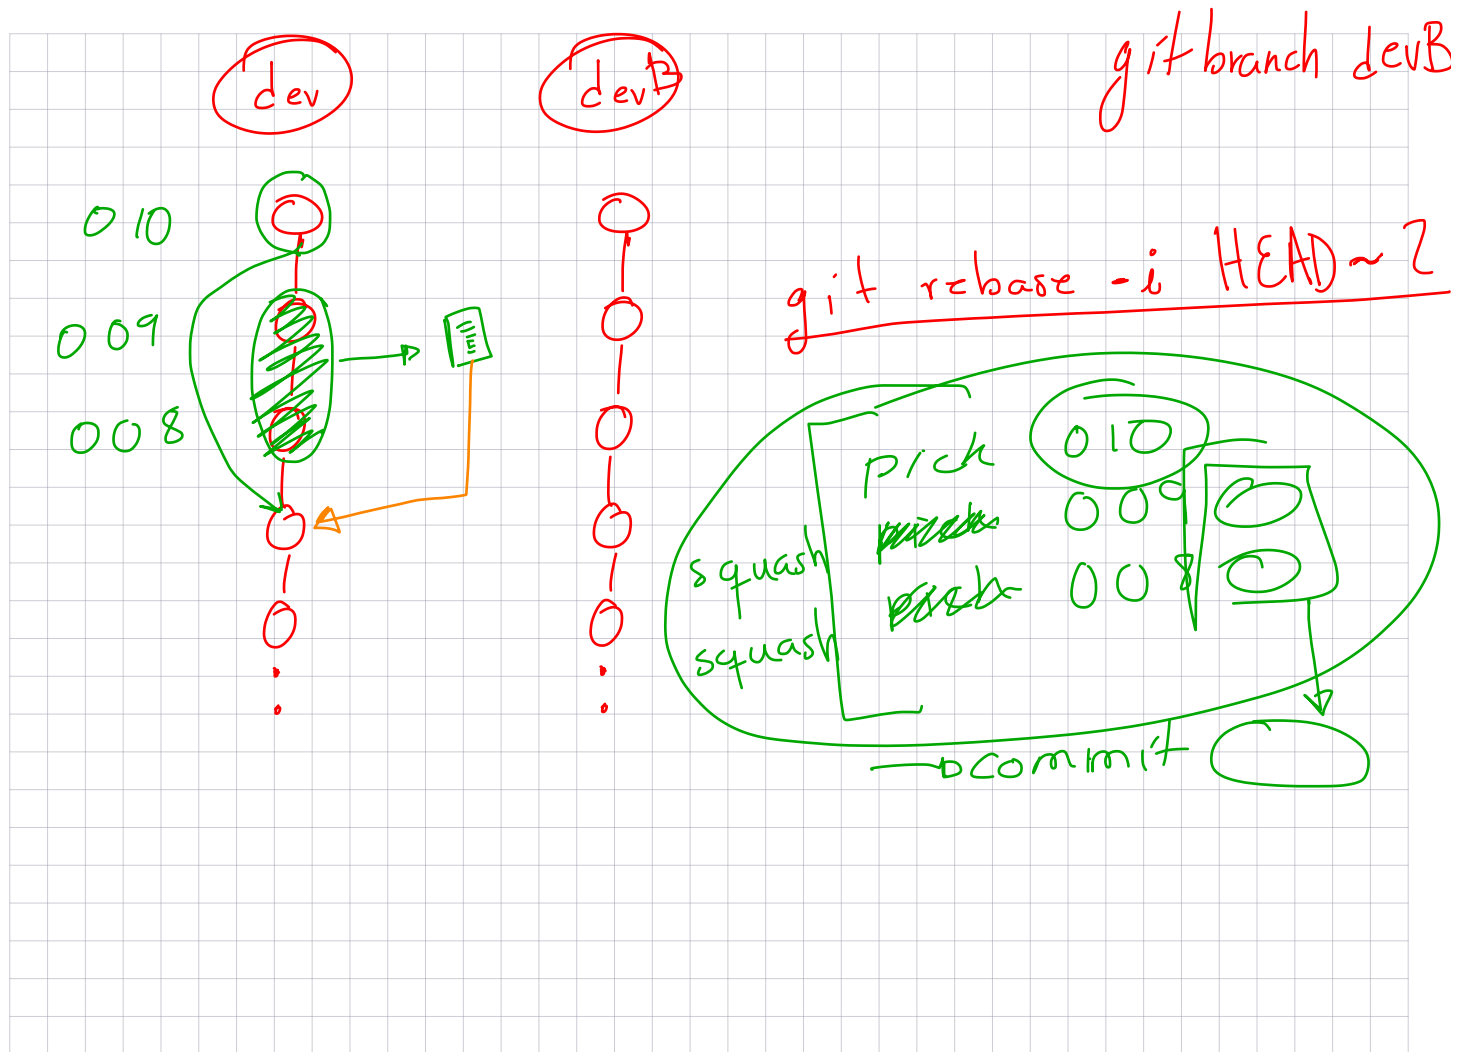 dev
devB
git branch devB
010
009
008
git rebase -i HEAD~2
pick 010
squash pick 009
squash pick 008
commit